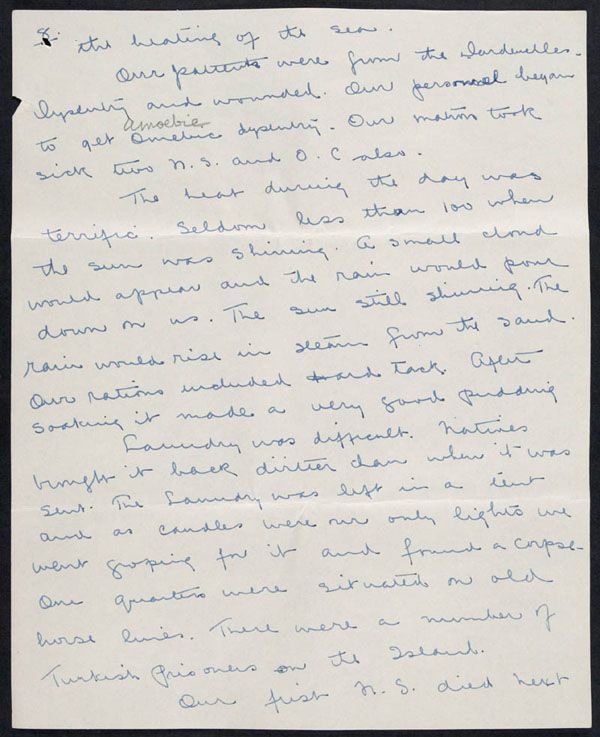 8
the beating of the sea.
Our patients were from the Dardenelles.
Dysentry and wounded. Our personel began
Amoebic
to get Omebic dysentry. Our matron took
sick two N.S. and O.C also.
The heat during the day was
terrific. Seldom less than 100 when
the sun was shining. A small cloud
would appear and the rain would pour
down on us. The sun still shining. The
rain would rise in steam from the sand.
Our rations included hard tack. After
soaking it made a very good pudding
Laundry was difficult. Natives
brought it back dirtier than when it was
sent. The Laundry was left in a tent
and as candles were our only lights we
went groping for it and found a corpse.
Our quarters were situated on old
horse lines. There were a number of
Turkish prisoners on the Island.
Our first N.S. died next